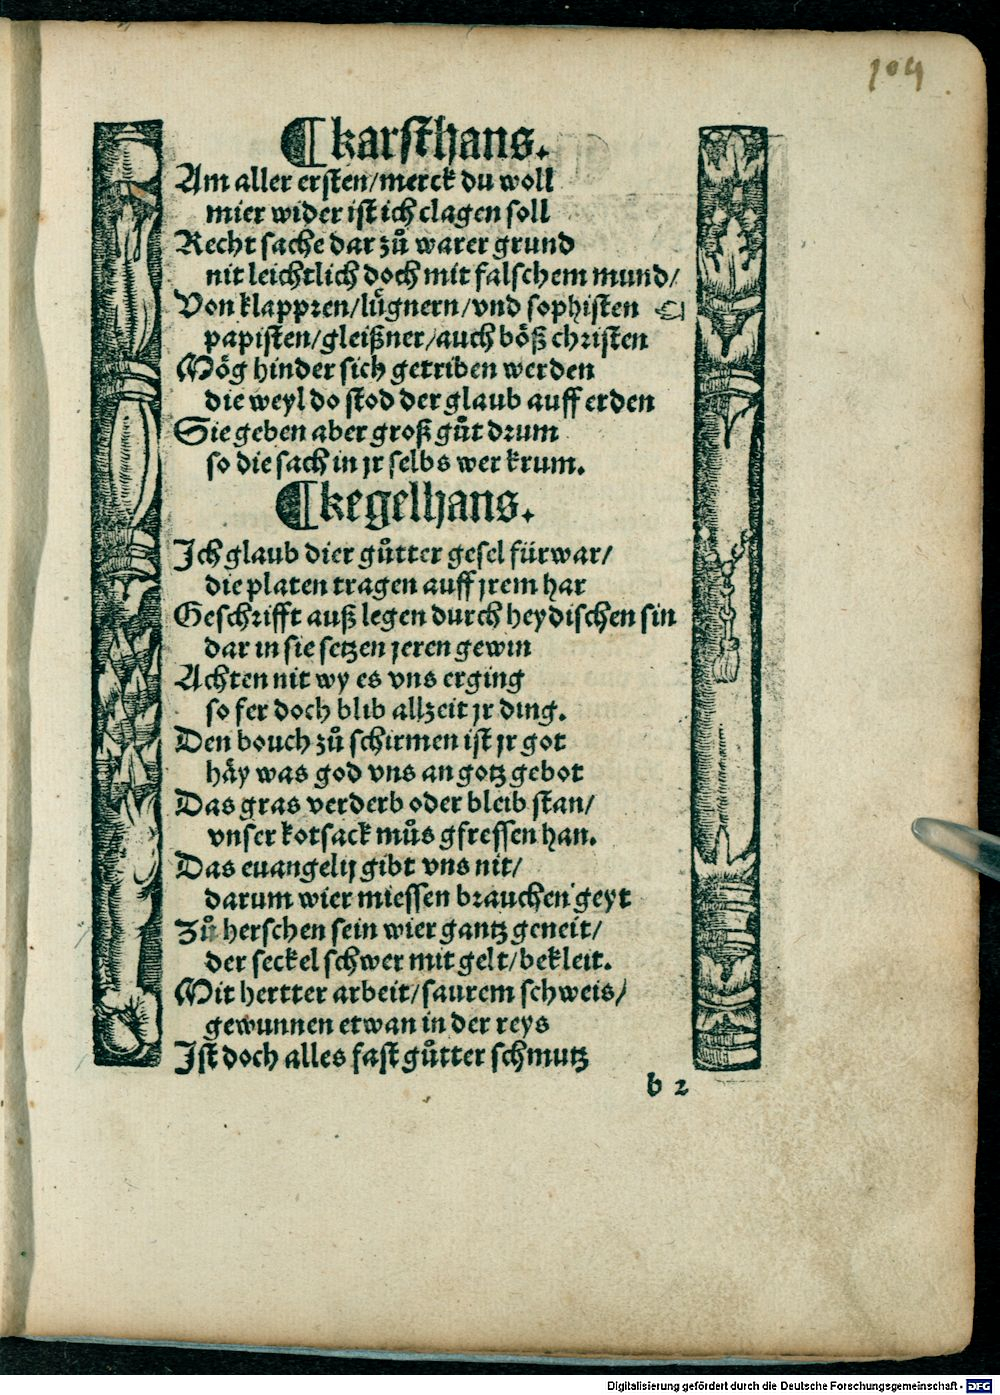 104
¶ karsthans.
Am aller ersten/merck du woll
mier wider ist ich clagen soll
Recht sache dar zů warer grund
nit leichtlich doch mit falschem mund/
Von klappren/lügnern/vnd sophisten
papisten/gleißner/auch böß christen
Mög hinder sich getriben werden
die weyl do stod der glaub auff erden
Sie geben aber groß gůt drum
so die sach in jr selbs wer krum.
¶ kegelhans.
Ich glaub dier gůtter gesel fürwar/
die platen tragen auff jrem har
Geschrifft auß legen durch heydischen sin
dar in sie setzen jeren gewin
Achten nit wy es vns erging
so fer doch blib allzeit jr ding.
Den bouch zů schirmen ist jr got
häy was god vns an gotz gebot
Das gras verderb oder bleib stan/
vnser kotsack můs gfressen han.
Das euangelij gibt vns nit/
darum wier miessen brauchen geyt
Zů herschen sein wier gantz geneit/
der seckel schwer mit gelt/bekleit.
Mit hertter arbeit/saurem schweis/
gewunnen etwan in der reys
Ist doch alles fast gůtter schmutz
b 2
Digitalisierung gefördert durch die Deutsche Forschungsgemeinschaft - DFG